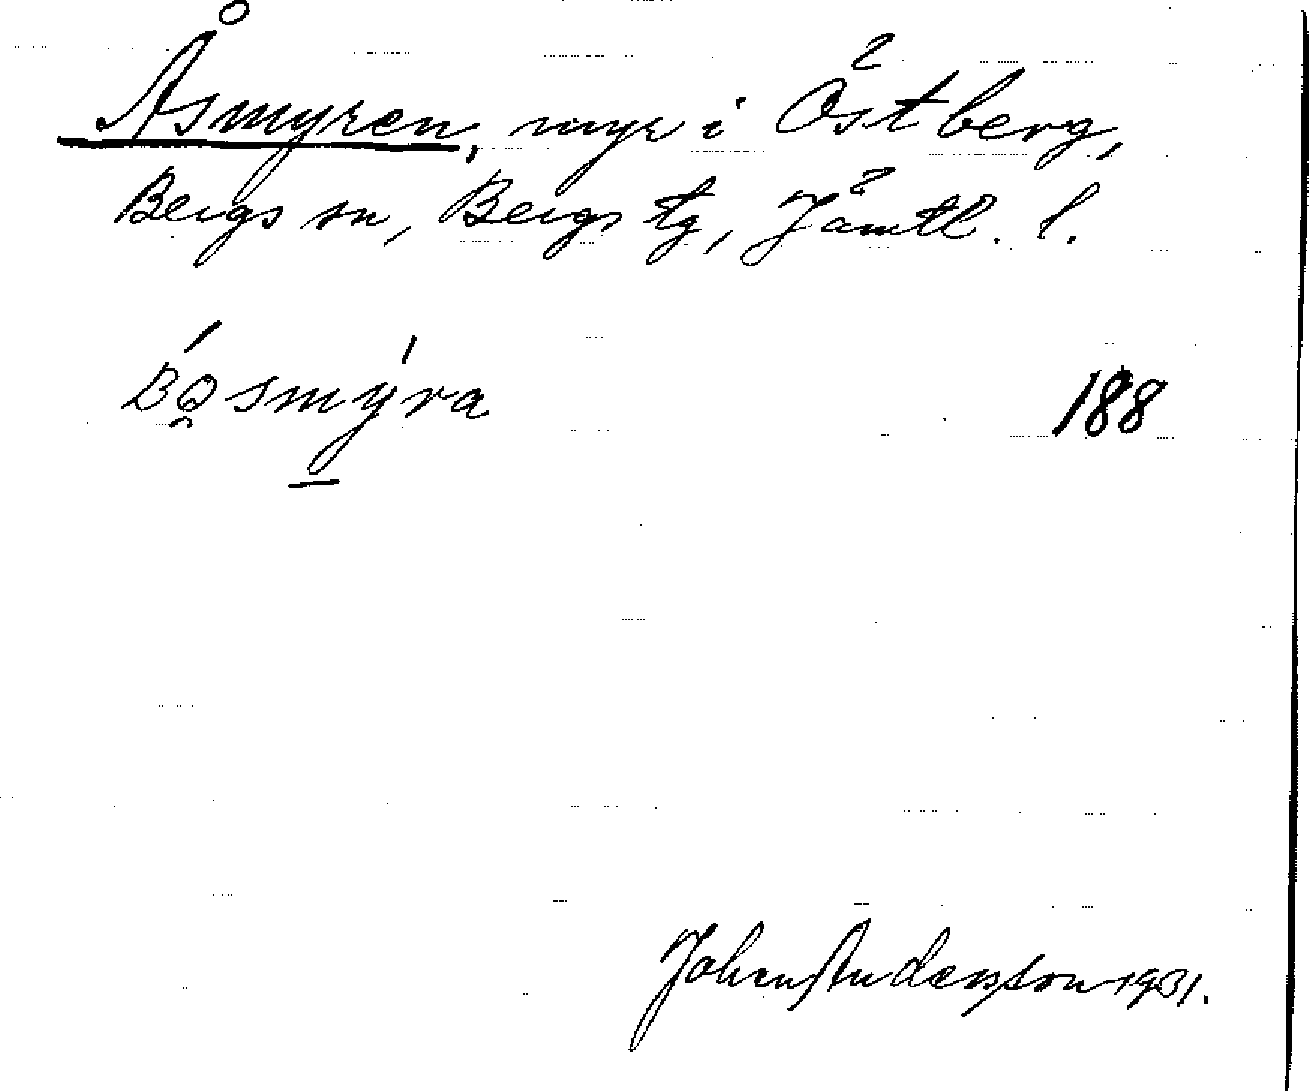 Åsmyren, myr i Östberg,
Bergs sn, Bergs tg, Jämtl. l.
188
John Andersson 1931.